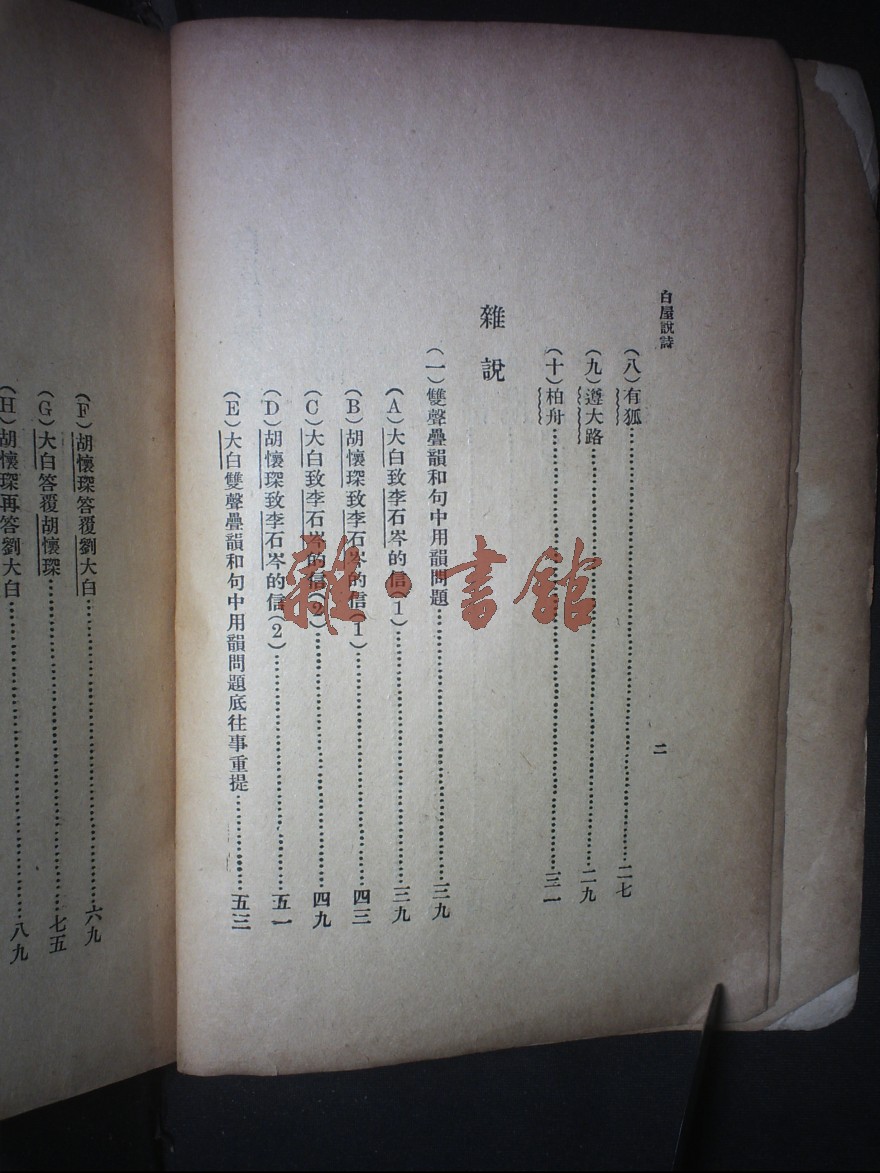 白屋說詩
二
(八)有狐……二七
(九)遵大路……二九
(十)柏舟……三一
雜說
(一)雙聲疊韻和句中用韻問題……三九
(A)大白致李石岑的信(1)……三九
(B)胡懷琛致李石岑的信(1)……四三
(C)大白致李石岑的信(2)……四九
(D)胡懷琛致李石岑的信(2)……五一
(E)大白雙聲疊韻和句中用韻問題底往事重提……五三
(F)胡懷琛答覆劉大白……六九
(G)大白答覆胡懷琛……七五
(H)胡懷琛再答劉大白……八九
雜·書館